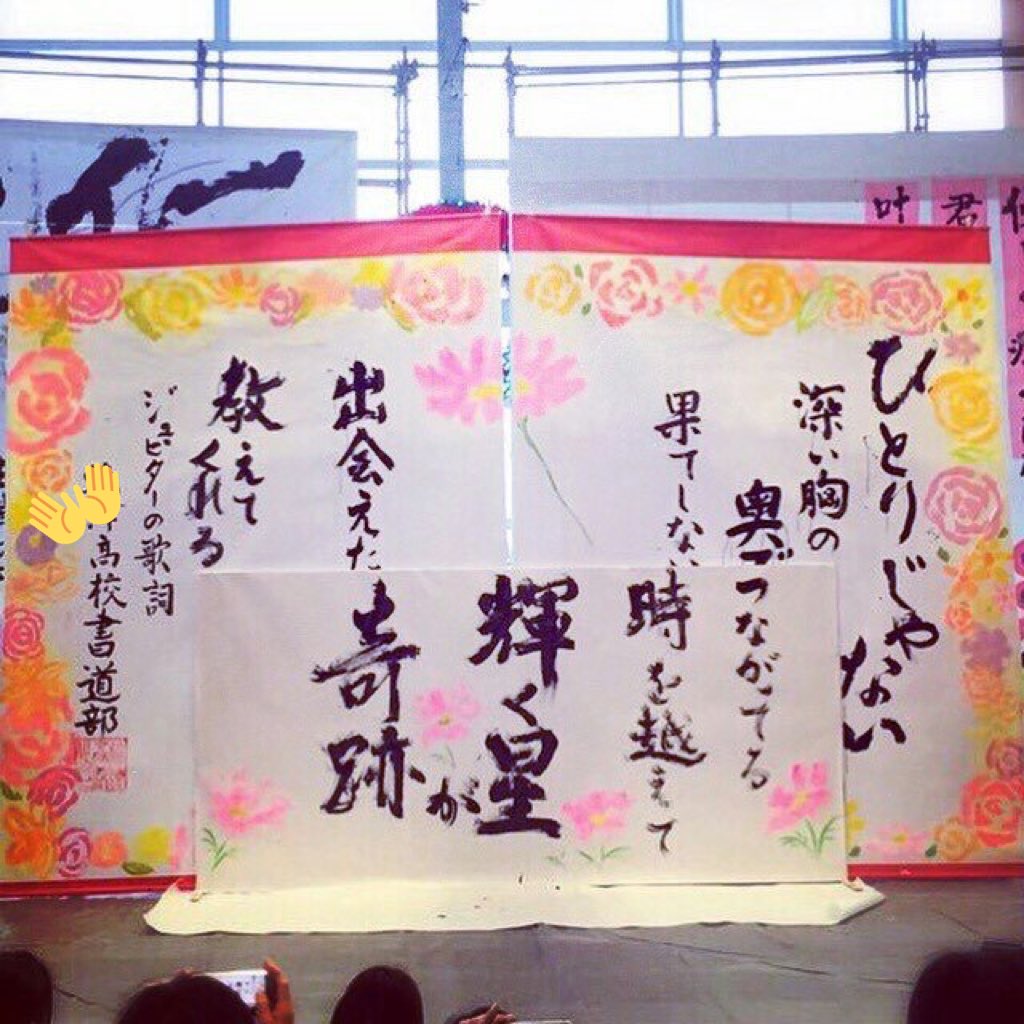 ひとりじゃない
深い胸の
奥でつながってる
果てしない
時を越えて
輝く星が
出会えた
奇跡
教えて
くれる
ジュピターの歌詞
高校書道部
叶
君